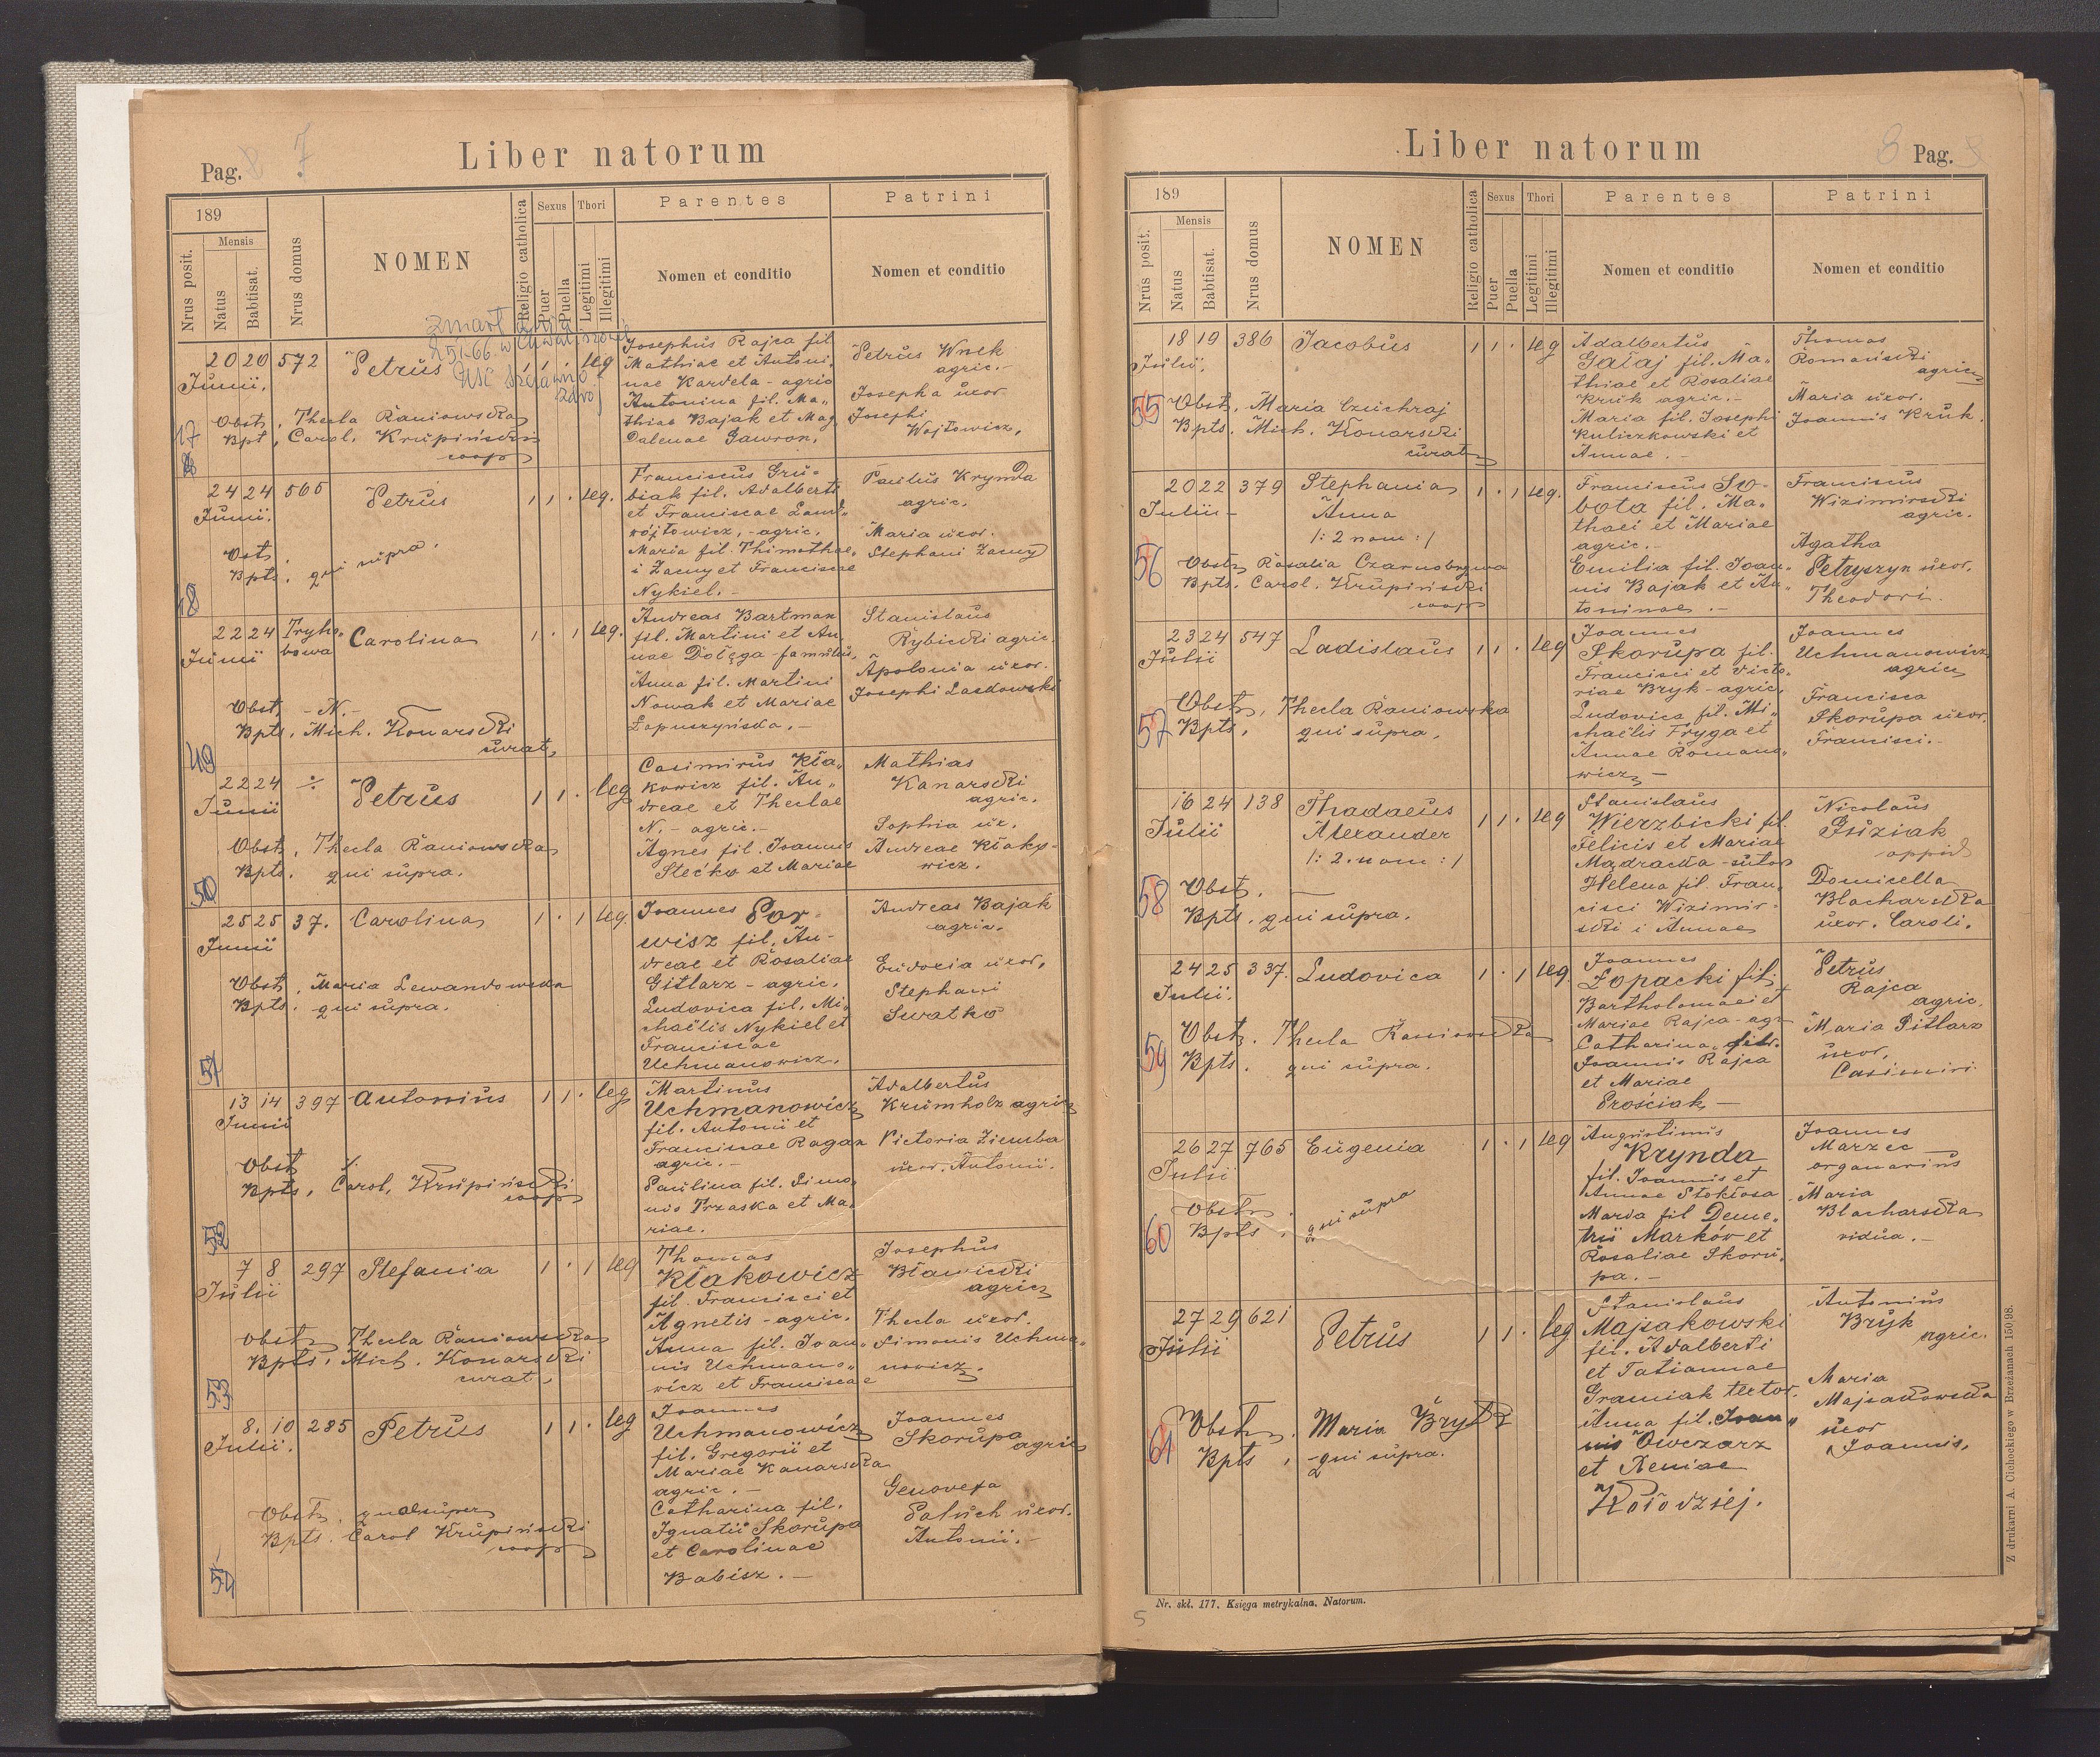 Pag. 7
Liber natorum
189
Nrus posit.
Mensis
Natus
Babtisat.
Nrus domus
NOMEN
Religio catholica
Sexus
Puer
Puella
Thori
Legitimi
Illegitimi
Parentes
Nomen et conditio
Patrini
Nomen et conditio
20 20 572 Petrus 1 1 . leg
Junii.
Obst. Thecla Raniowska
Bpt. Carol. Krupiński
coop
Josephus Rajca fil
Mathiae et Antoni„
nae Kardela - agric
Antonina fil. Ma„
thiae Bajak et Mag
dalenae Gawron.
Petrus Wnek
agric.-
Josepha uxor
Josephi
Wojtowicz.
24 24 565 Petrus 1 1 . leg.
Junii.
Obst.
Bpts. qui supra.
48
Franciscus Gru-
biak fil. Adalberti
et Franciscae Lant„
wójtowicz, - agric.
Maria fil. Thimothae„
i Zacny et Franciscae
Nykiel.-
Paulus Krynda
agric.
Maria uxor.
Stephani Zacny
22 24 Tryho„
bowa Carolina 1 . 1 leg.
Junii
Obst. - N.-
Bpts. Mich. Konarski
curat.
49
Andreas Bartman
fil. Martini et An„
nae Dołęga - famulus,
Anna fil. Martini
Nowak et Mariae
Łopuszyńska.-
Stanislaus
Rybicki agric.
Apolonia uxor.
Josephi Laskowski
22 24 ÷ Petrus 1 1 . leg
Junii
Obst. Thecla Raniowska
Bpts. qui supra.
50
Casimirus Kła„
kowicz fil. An„
dreae et Theclae
N. - agric.-
Agnes fil. Joannis
Stećko et Mariae
Mathias
Kanarski
agric.
Sophia ux.
Andreae Kłako-
wicz.
25 25 37. Carolina 1 . 1 leg.
Junii
Obst. Maria Lewandowska
Bpts. qui supra.
51
Joannes Por-
wisz fil. An-
dreae et Rosaliae
Gitlarz - agric.
Ludovica fil. Mi-
chaëlis Nykiel et
Franciscae
Uchmanowicz.
Andreas Bajak
agric.
Eudoxia uxor.
Stephani
Swatko
13 14 397 Antonius 1 1 . leg
Junii
Obst. ./.
Bpts. Carol. Krupiński
coop
52
Martinus
Uchmanowicz
fil. Antonii et
Franciscae Ragan
agric.-
Paulina fil. Simo„
nis Trzaska et Ma„
riae.
Adalbertus
Krumholz agric
Victoria Ziemba
uxor. Antonii.
7 8 297 Stefania 1 . 1 leg
Julii
Obst. Thecla Raniowska
Bpts. Mich. Konarski
curat.
53
Thomas
Kłakowicz
fil. Francisci et
Agnetis - agric.
Anna fil. Joan„
nis Uchmano„
wicz et Franciscae
Josephus
Bławicki
agric
Thecla uxor.
Simonis Uchma„
nowicz.
8. 10 285 Petrus 1 1 . leg
Julii.
Obst. quae super
Bpts. Carol Krupiński
coop
54
Joannes
Uchmanowicz
fil. Gregorii et
Mariae Kanarska
agric.-
Catharina fil.
Ignatii Skorupa
et Carolinae
Babisz.-
Joannes
Skorupa agric
Genovefa
Paluch uxor.
Antonii.-
Liber natorum
8 Pag.
189
Nrus posit.
Mensis
Natus
Babtisat.
Nrus domus
NOMEN
Religio catholica
Sexus
Puer
Puella
Thori
Legitimi
Illegitimi
Parentes
Nomen et conditio
Patrini
Nomen et conditio
18 19 386 Jacobus 1 1 . leg
Julii.
55
Obst. Maria Czuchraj
Bpts. Mich. Konarski
curat
Adalbertus
Gałaj fil. Ma„
thiae et Rosaliae
Kruk agric.-
Maria fil. Josephi
Kuliczkowski et
Annae.-
Thomas
Romański
agric
Maria uxor.
Joannis Kruk.
20 22 379 Stephania 1 . 1 leg.
Julii- Anna
/: 2 nom :/
56
Obst. Rosalia Czarnobrywa
Bpts. Carol. Krupiński
coop
Franciscus So-
bota fil. Ma„
thaei et Mariae
agric.-
Emilia fil. Joan„
nis Bajak et An„
toninae.-
Franciscus
Wizimirski
agric.
Agatha
Petryszyn uxor.
Theodori.
23 24 547 Ladislaus 1 1 . leg
Julii
57
Obst. Thecla Raniowska
Bpts. qui supra.
Joannes
Skorupa fil.
Francisci et Victo„
riae Bryk - agric.
Ludovica fil. Mi„
chaëlis Fryga et
Annae Romano„
wicz-
Joannes
Uchmanowicz
agric
Francisca
Skorupa uxor.
Francisci.-
16 24 138 Thadaeus 1 1 . leg
Julii Alexander
/: 2. nom :/
58
Obst. —
Bpts. qui supra.
Stanislaus
Wierzbicki fil.
Felicis et Mariae
Mądracka - sutor
Helena fil. Fran„
cisci Wizimir-
ski i Annae
Nicolaus
Guziak
oppid
Domicella
Blacharska
uxor. Caroli.
24 25 337. Ludovica 1 . 1 leg.
Julii.
59
Obst. Thecla Raniowska
Bpts. qui supra.
Joannes
Łopacki fil.
Bartholomaei et
Mariae Rajca - agr
Catharina fil.
Joannis Rajca
et Mariae
Prościak-
Petrus
Rajca
agric.
Maria Pitlarz
uxor.
Casimiri
26 27 765 Eugenia 1 . 1 leg
Julii
60
Obst.
Bpts. qui supra
Augustinus
Krynda
fil. Joannis et
Annae Stokłosa
Maria fil Deme„
trii Marków et
Rosaliae Skoru„
pa.-
Joannes
Marzec
organarius
Maria
Blacharska
vidua.-
27 29 621 Petrus 1 1 . leg
Julii
61
Obst. Maria Bryk
Bpts. qui supra.
Stanislaus
Majsakowski
fil. Adalberti
et Tatiannae
Graniak textor.
Anna fil. Joan„
nis Owczarz
et Xeniae
Kołodziej.
Antonius
Bryk
agric.
Maria
Majsakowska
uxor
Joannis.
Nr. skł. 177. Księga metrykalna. Natorum.
Z drukarni A. Cichockiego w Brzeżanach 150/98.
5